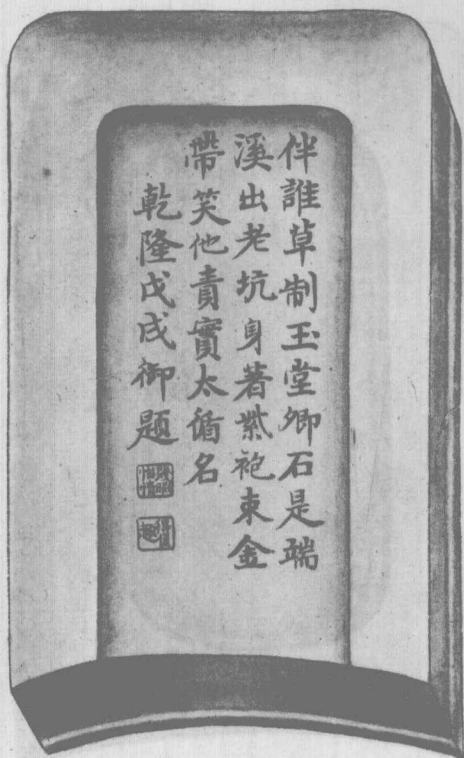 伴誰草制玉堂卿石是端
溪出老坑身著紫袍束金
帶笑他責實太循名
乾隆戊戌御題